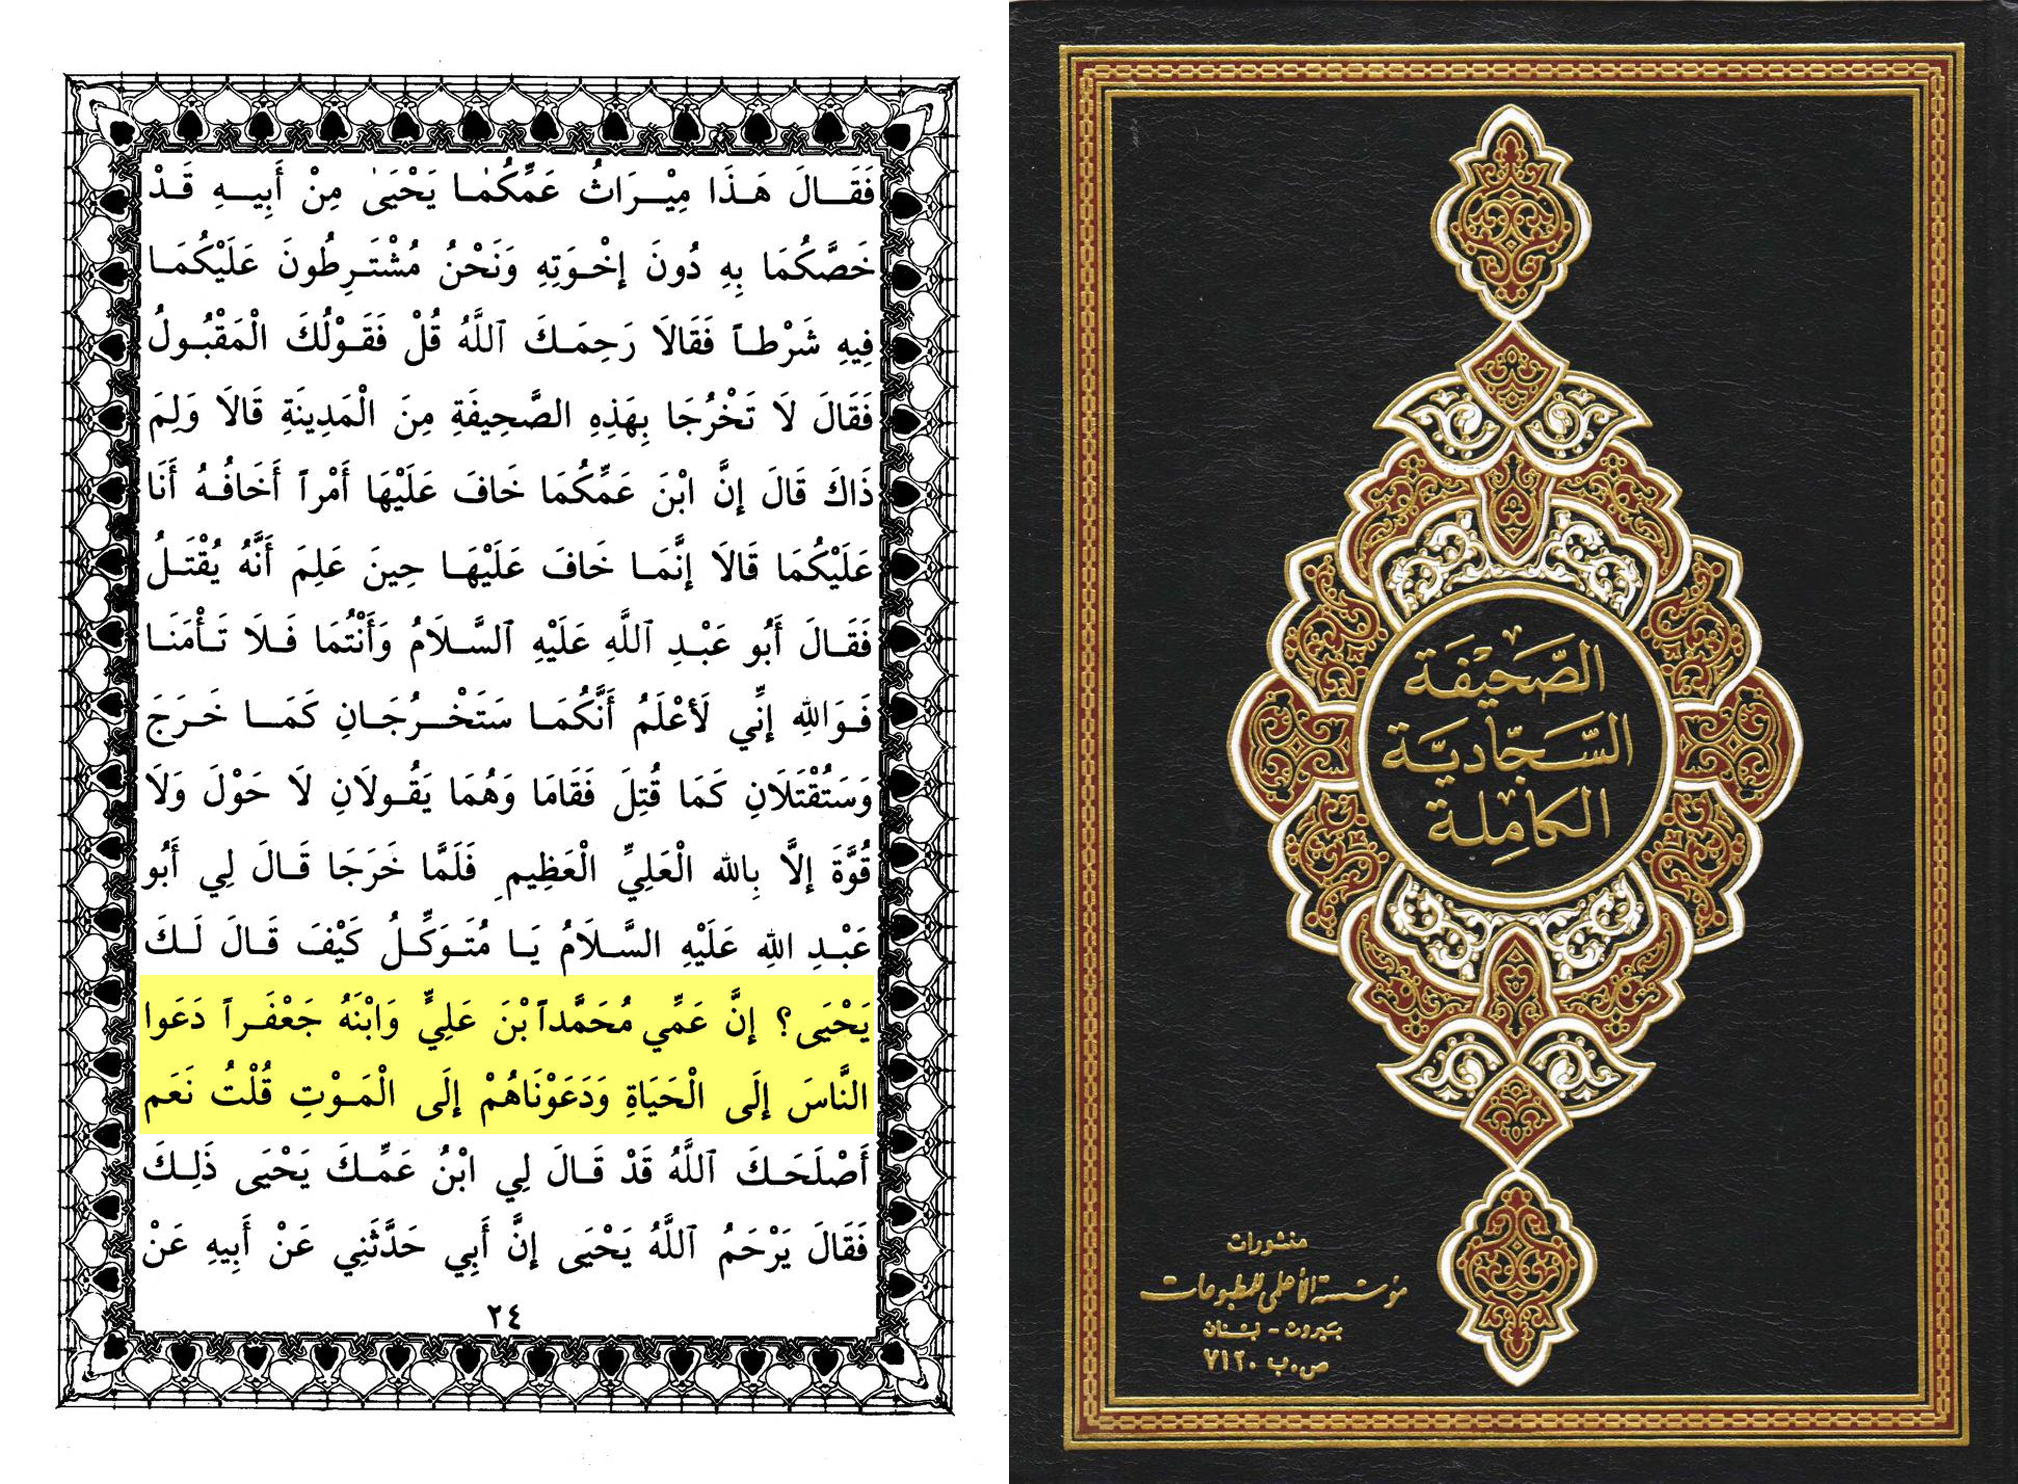 فَقَالَ هَذَا مِيْرَاثُ عَمِّكُمَا يَحْيَىٰ مِنْ أَبِيهِ قَدْ
خَصَّكُمَا بِهِ دُونَ إِخْوَتِهِ وَنَحْنُ مُشْتَرِطُونَ عَلَيْكُمَا
فِيهِ شَرْطاً فَقَالاَ رَحِمَكَ ٱللَّهُ قُلْ فَقَوْلُكَ الْمَقْبُولُ
فَقَالَ لاَ تَخْرُجَا بِهَذِهِ الصَّحِيفَةِ مِنَ الْمَدِينَةِ قَالاَ وَلِمَ
ذَاكَ قَالَ إِنَّ ابْنَ عَمِّكُمَا خَافَ عَلَيْهَا أَمْراً أَخَافُهُ أَنَا
عَلَيْكُمَا قَالاَ إِنَّمَا خَافَ عَلَيْهَا حِينَ عَلِمَ أَنَّهُ يُقْتَلُ
فَقَالَ أَبُو عَبْدِ ٱللَّهِ عَلَيْهِ ٱلسَّلاَمُ وَأَنْتُمَا فَلاَ تَأْمَنَا
فَوَاللهِ إِنِّي لَأَعْلَمُ أَنَّكُمَا سَتَخْرُجَانِ كَمَا خَرَجَ
وَسَتُقْتَلاَنِ كَمَا قُتِلَ فَقَامَا وَهُمَا يَقُولاَنِ لاَ حَوْلَ وَلاَ
قُوَّةَ إِلاَّ بِالله الْعَلِيِّ الْعَظِيمِ فَلَمَّا خَرَجَا قَالَ لِي أَبُو
عَبْدِ اللهِ عَلَيْهِ السَّلاَمُ يَا مُتَوَكِّلُ كَيْفَ قَالَ لَكَ
يَحْيَى؟ إِنَّ عَمِّي مُحَمَّداً بْنَ عَلِيٍّ وَابْنَهُ جَعْفَراً دَعَوا
النَّاسَ إِلَى الْحَيَاةِ وَدَعَوْنَاهُمْ إِلَى الْمَوْتِ قُلْتُ نَعَم
أَصْلَحَكَ ٱللَّهُ قَدْ قَالَ لِي ابْنُ عَمِّكَ يَحْيَى ذَلِكَ
فَقَالَ يَرْحَمُ ٱللَّهُ يَحْيَى إِنَّ أَبِي حَدَّثَنِي عَنْ أَبِيهِ عَنْ
٢٤
الصَّحِيْفَة
السَّجّادِيَّة
الكامِلة
منشورات
مؤسسة الأعلى للمطبوعات
بيروت - لبنان
ص.ب ٧١٢٠